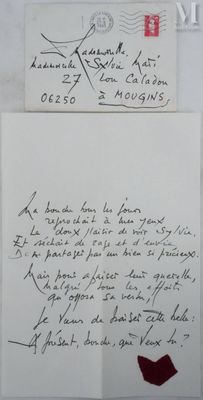 Mademoiselle
Mademoiselle Sylvie
27 Lou Caladou
06250 à MOUGINS
Ma bouche tous les jours
reprochait à mes yeux
Le doux plaisir de voir Sylvie,
Et séchait de rage et d'envie
De partager pas un bien si précieux.
Mais pour apaiser leur querelle,
Malgré tous les efforts
qu'opposa sa vertu,
Je viens de baiser cette belle:
À présent, bouche, que veux tu?
M